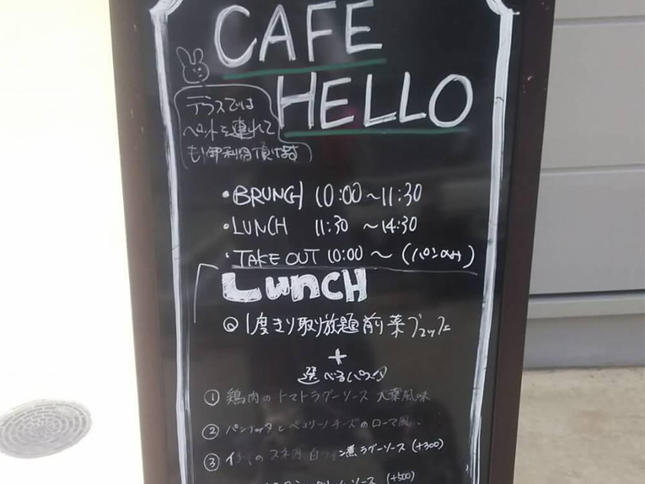 CAFE
HELLO
テラスでは
ペットを連れて
も
・BRUNCH 10:00～11:30
・LUNCH 11:30～14:30
・TAKE OUT 10:00～(パンのみ)
LuncH
1度きり取り放題前菜ブッフェ
+
選べるパスタ
① 鶏肉のトマトラグーソース 大葉風味
② パンチェッタとペコリーノチーズのローマ風
③ のスネ肉 白ワイン煮ラグーソース (+300)
ソース (+500)